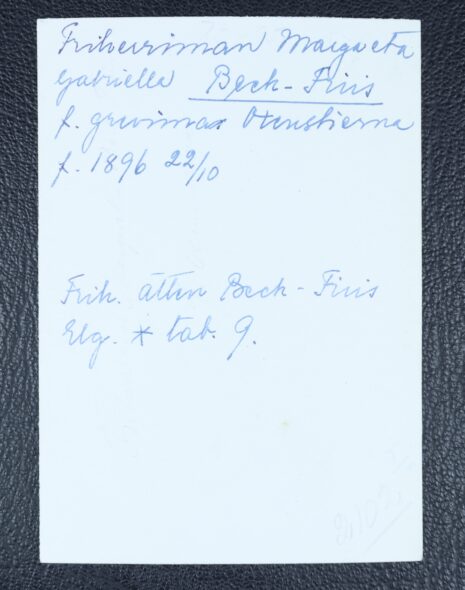 Friherrinnan Margareta
Gabriella Beck-Friis
f. grevinna Oxenstierna
f. 1896 22/10
Frih. ätten Beck-Friis
Elg. * tab. 9.